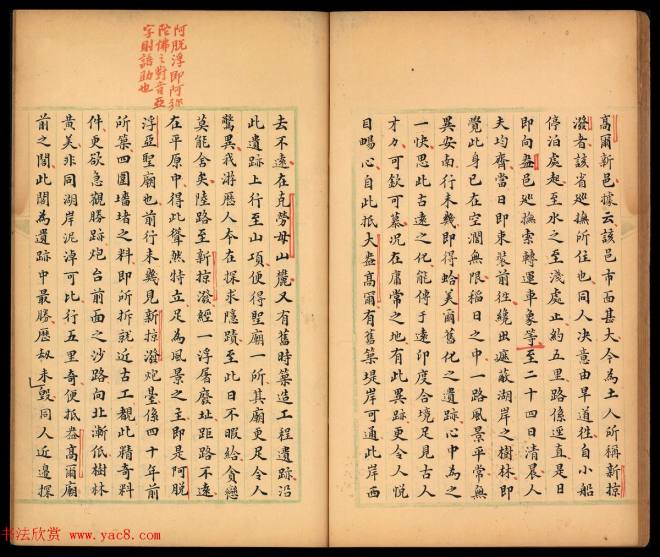 高爾新邑據云該邑市西甚大今為土人所稱新掠
潑者該省巡撫所住也同人決意由旱道往自小船
停泊處起至水之至淺處止約五里路係遥直是日
即向盎邑巡撫索轉運車象等至二十四日清晨人
夫均齊當日即束裝前往纔出遮蔽湖岸之樹林即
覺此身已在空濶無限稻日之中一路風景平常無
異安南行未幾即得蛤美爾舊化之遺跡心中為之
一快思此古遠之化能傳于遠印度合境足見古人
才力可欽可慕况在庸常之地有此異跡更令人悦
目暢心自此抵大盎高爾有舊築堤岸可通此岸西
阿脱浮即阿弥
陀佛之對音亞
字則語助也
去不遠在克勞母山麓又有舊時築造工程遺跡沿
此遺跡上行至山項便得聖廟一所其廟更足令人
驚異我游歷人奉在探求隱蹟至此日不暇給貪戀
莫能舍矣陸路至新掠潑經一浮屠廢址距路不遠
在平原中得此聳然特立足為風景之主即是阿脱
浮亞聖廟也前行未幾見新掠潑炮臺係四十年前
所築四圍墻堵之料即所拆就近古工觀此精奇料
件更欲急觀勝跡炮台前面之沙路向北漸低樹林
黄美非同湖岸泥濘可比行五里奇便抵盎高爾廟
前之閣此閣為遺跡中最勝歷刼未毁同人近邊探
书法欣赏 www.yac8.com